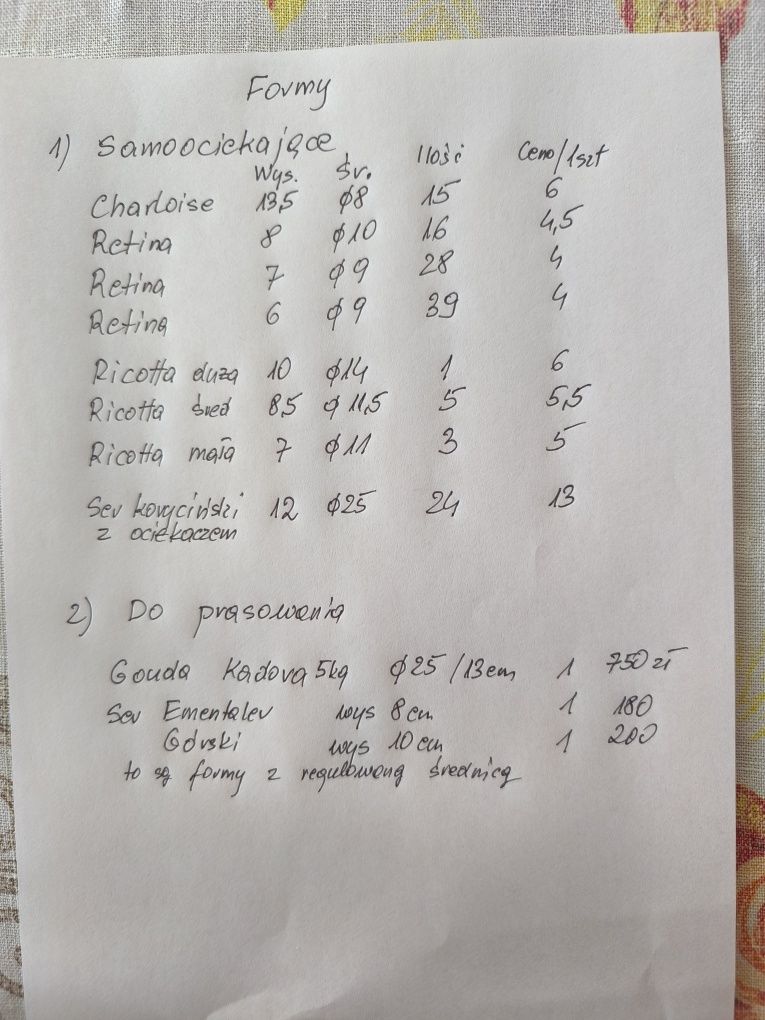 Formy
1) Samoociekające
Wys. Śr. Ilość Cena/1szt
Charloise 13,5 ϕ8 15 6
Retina 8 ϕ10 16 4,5
Retina 7 ϕ9 28 4
Retina 6 ϕ9 39 4
Ricotta duża 10 ϕ14 1 6
Ricotta śred 8,5 ϕ11,5 5 5,5
Ricotta mała 7 ϕ11 3 5
Ser koryciński 12 ϕ25 24 13
z ociekaczem
2) Do prasowania
Gouda Kadova 5kg ϕ25/13cm 1 750 zł
Ser Ementaler wys 8cm 1 180
Górski wys 10cm 1 200
to są formy z regulowaną średnicą